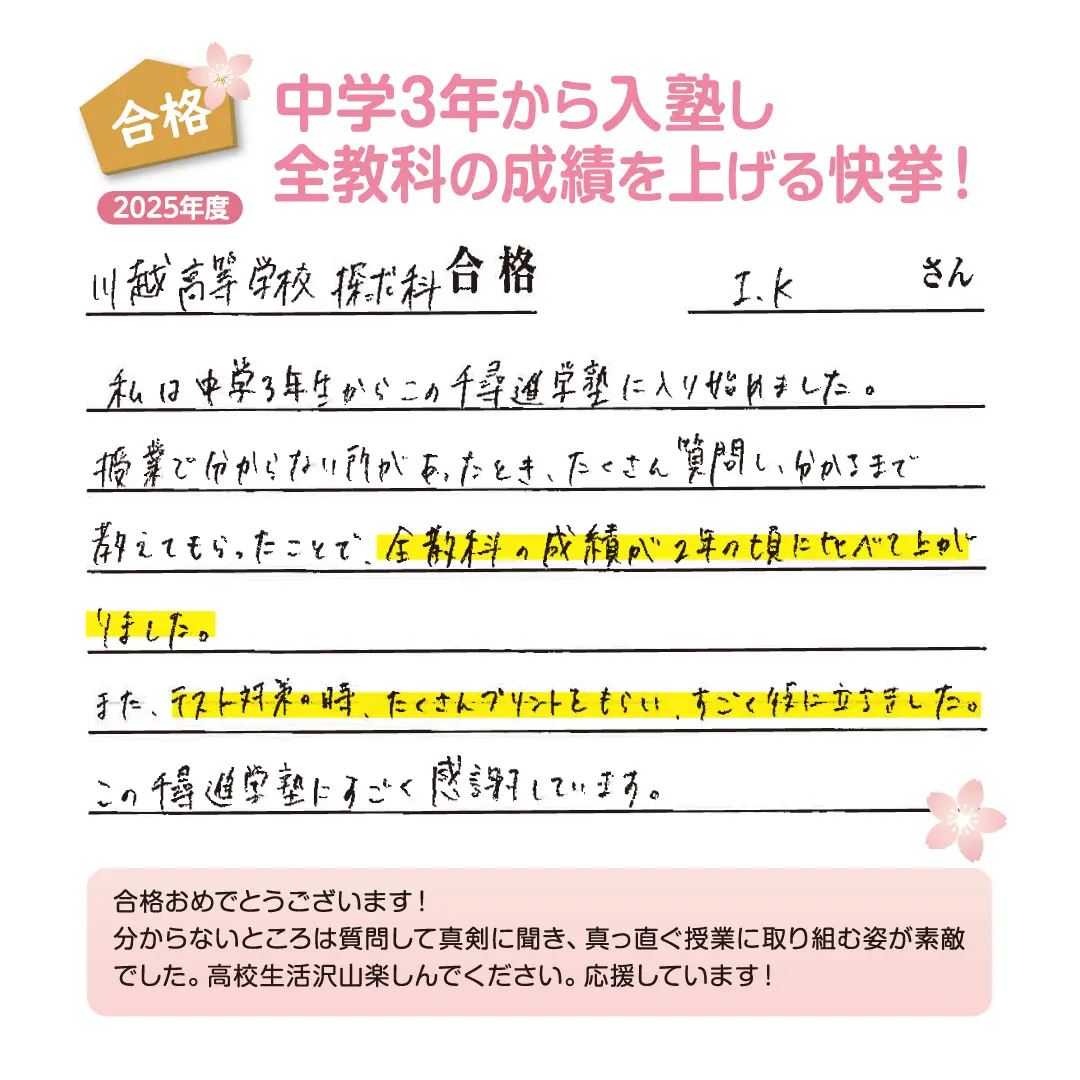 合格
2025年度
中学3年から入塾し
全教科の成績を上げる快挙！
川越高等学校 探究科 合格
I.K さん
私は中学3年生からこの千尋進学塾に入り始めました。
授業で分からない所があったとき、たくさん質問し、分かるまで
教えてもらったことで、全教科の成績が2年の頃に比べて上が
りました。
また、テスト対策の時、たくさんプリントをもらい、すごく役に立ちました。
この千尋進学塾にすごく感謝しています。
合格おめでとうございます！
分からないところは質問して真剣に聞き、真っ直ぐ授業に取り組む姿が素敵
でした。高校生活沢山楽しんでください。応援しています！